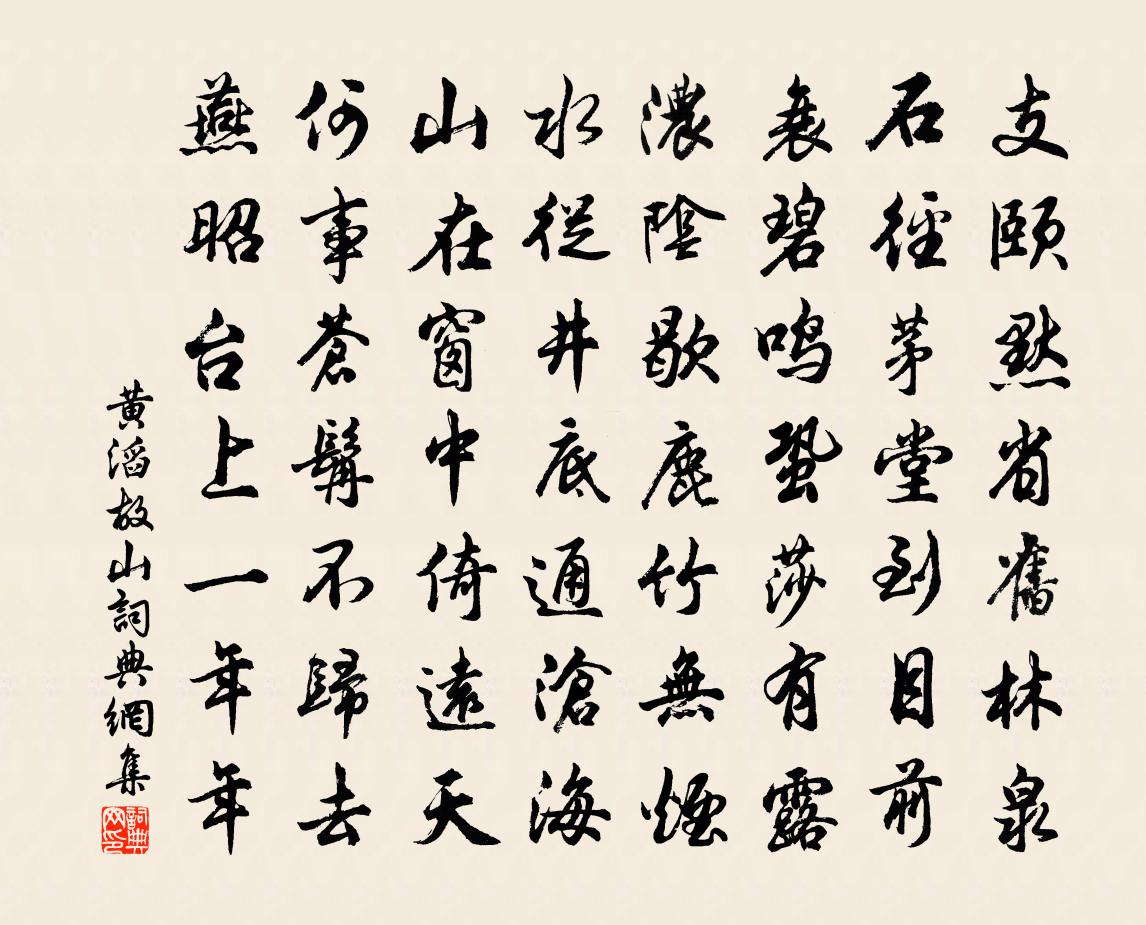 支頤默省舊林泉
石徑茅堂到目前
衰碧鳴蛩莎有露
濃陰歇鹿竹無煙
水從井底通滄海
山在窗中倚遠天
何事蒼髯不歸去
燕昭台上一年年
黃滔故山詞典網集
詞典网印